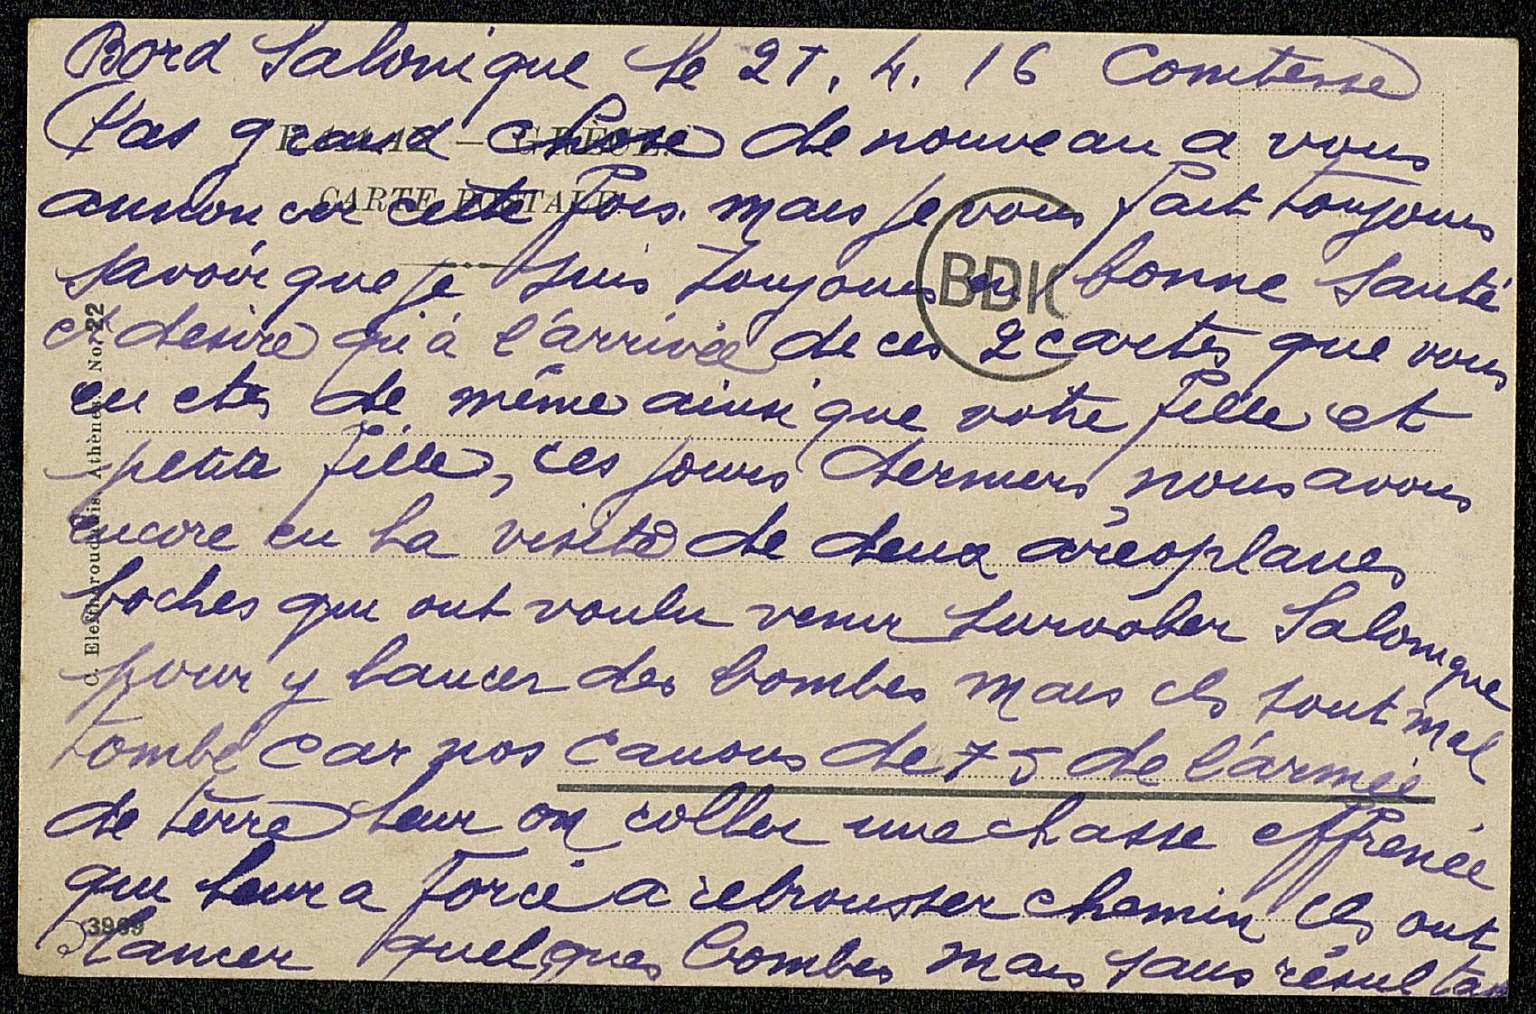 Bord Salonique le 27. 4. 16 Comtesse
Pas grand chose de nouveau a vous
annoncer cette fois. mais je vous fait toujours
savoir que je suis toujours en bonne santé
et desire qu'à l'arrivée de ces 2 cartes que vous
en etes de même ainsi que votre fille et
petite fille, ces jours derniers nous avons
encore eu la visite de deux aréoplanes
boches qui ont voulu venir survoler Salonique
pour y lancer des bombes mais ils sont mal
tombé car nos canons de 75 de l'armée
de terre leur on coller une chasse effrenée
qui leur a forcé a rebrousser chemin ils ont
lancer quelques bombes mais sans résultas
GRÈCE
CARTE POSTALE
BDIC
C. Eleftheroudakis, Athènes No. 22
3969